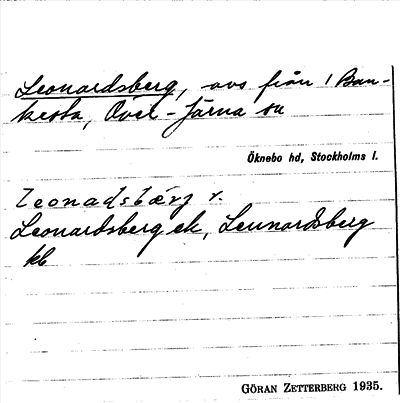 Leonardsberg, avs från 1 Ban-
kesta, Över-Järna sn
Öknebo hd, Stockholms l.
leonadsbärj r.
Leonardsberg ek, Leunardsberg
kb
GÖRAN ZETTERBERG 1935.